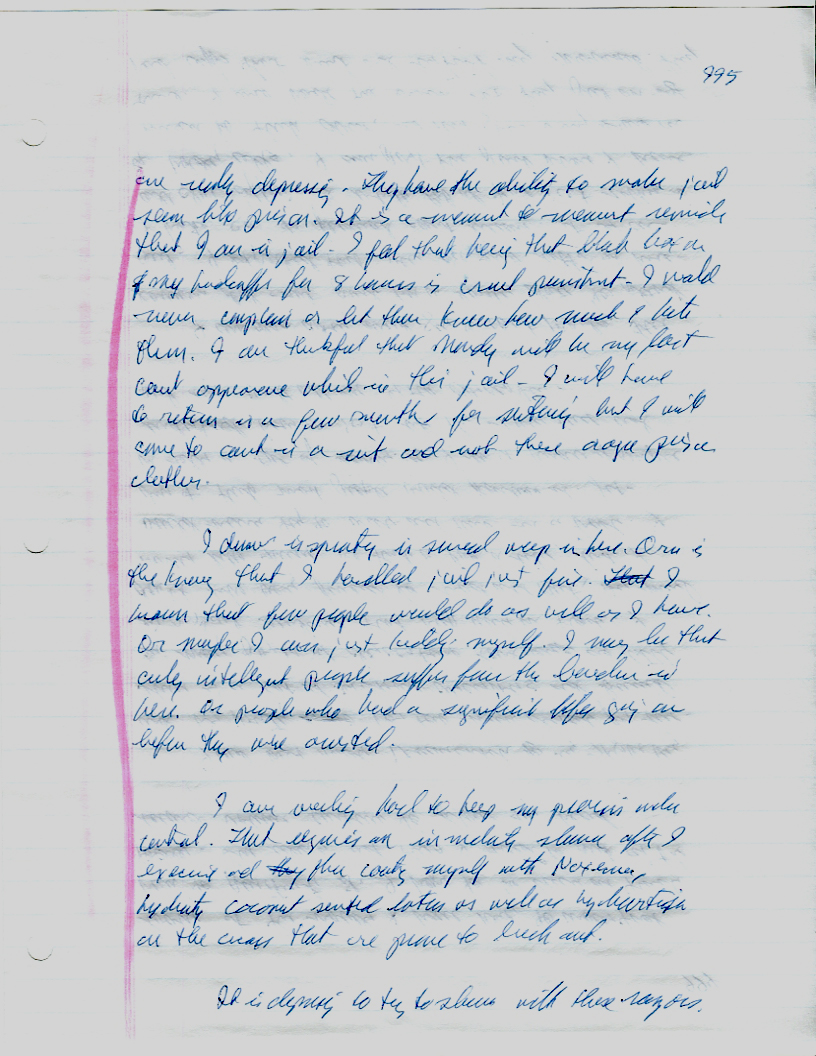 995
are really depressing. They have the ability to make jail
seem like prison. It is a moment to moment reminder
that I am in jail. I feel that being that black box on
my handcuffs for 8 hours is cruel punishment. I would
never complain or let them know how much I hate
them. I am thankful that Monday will be my last
court appearance while in this jail. I will have
to return in a few months for sentencing but I will
come to court in a suit and not these orange prison
clothes.
I draw in several ways in here. One is
the knowing that I handled jail just fine. That I
mean that few people would do as well as I have.
Or maybe I am just kidding myself. I may be that
only intelligent people suffer from the boredom in
here. Or people who had a significant life going on
before they were arrested.
I am working hard to keep my psoriasis under
control. That requires an immediate shower after I
exercise and they then coating myself with Noxema,
hydrating coconut scented lotion as well as hydrocortisone
on the areas that are prone to break out.
It is depressing to try to shave with these razors.